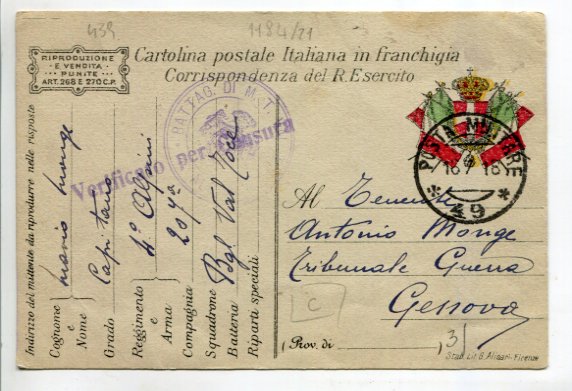 439
1184/21
RIPRODUZIONE
E VENDITA
PUNITE
ART. 268 E 270 C.P.
Cartolina postale Italiana in franchigia
Corrispondenza del R. Esercito
BATTAG. DI M.
Verificato per censura
POSTA MILITARE
16 7 18
* 49 *
Al Tenente
Antonio Monge
Tribunale Guerra
Genova
C
(Prov. di
3)
Stab. Lit. B. Alinari-Firenze
Indirizzo del mittente da riprodurre nelle risposte
Cognome e Nome
Mario Monge
Grado
Capitano
Reggimento e Arma
4° Alpini
Compagnia
207ª
Squadrone
Batteria
Riparti speciali
Bgl Val Toce